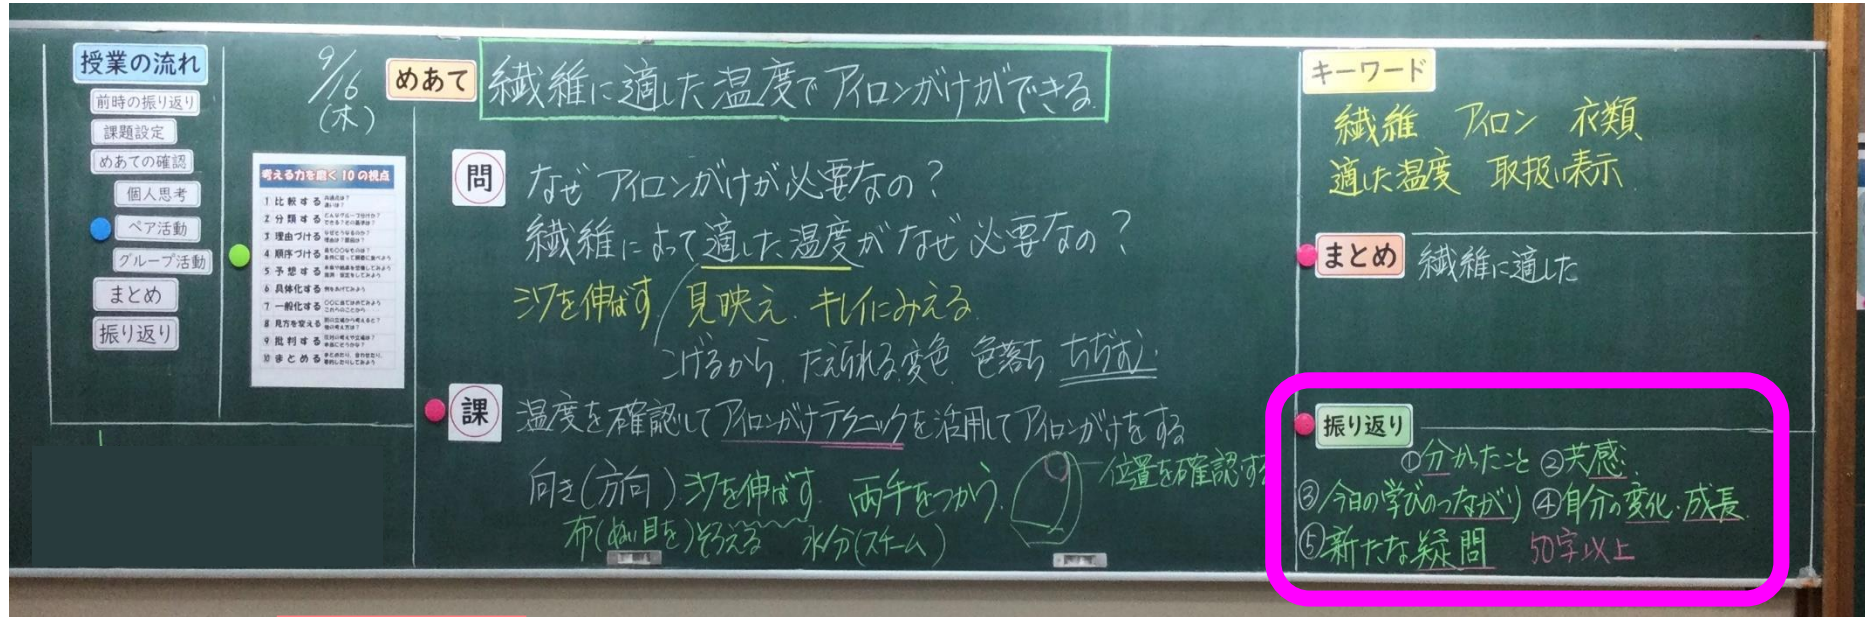 授業の流れ
前時の振り返り
課題設定
めあての確認
個人思考
ペア活動
グループ活動
まとめ
振り返り
考える力を磨く10の視点
1 比較する
2 分類する
3 理由づける
4 順序づける
5 予想する
6 具体化する
7 一般化する
8 見方を変える
9 批判する
10 まとめる
9/16
(木)
めあて 繊維に適した温度でアイロンがけができる
問 なぜアイロンがけが必要なの?
繊維によって適した温度がなぜ必要なの?
シワを伸ばす 見映え キレイにみえる
こげるから たえられる 変色 色落ち ちぢむ
課 温度を確認してアイロンがけテクニックを活用してアイロンがけをする
向き(方向) シワを伸ばす 両手をつかう 位置を確認する
布(ぬい目を)そろえる 水分(スチーム)
キーワード
繊維 アイロン 衣類
適した温度 取扱い表示
まとめ 繊維に適した
振り返り
①分かったこと ②共感
③今日の学びのつながり ④自分の変化・成長
⑤新たな疑問 50字以上